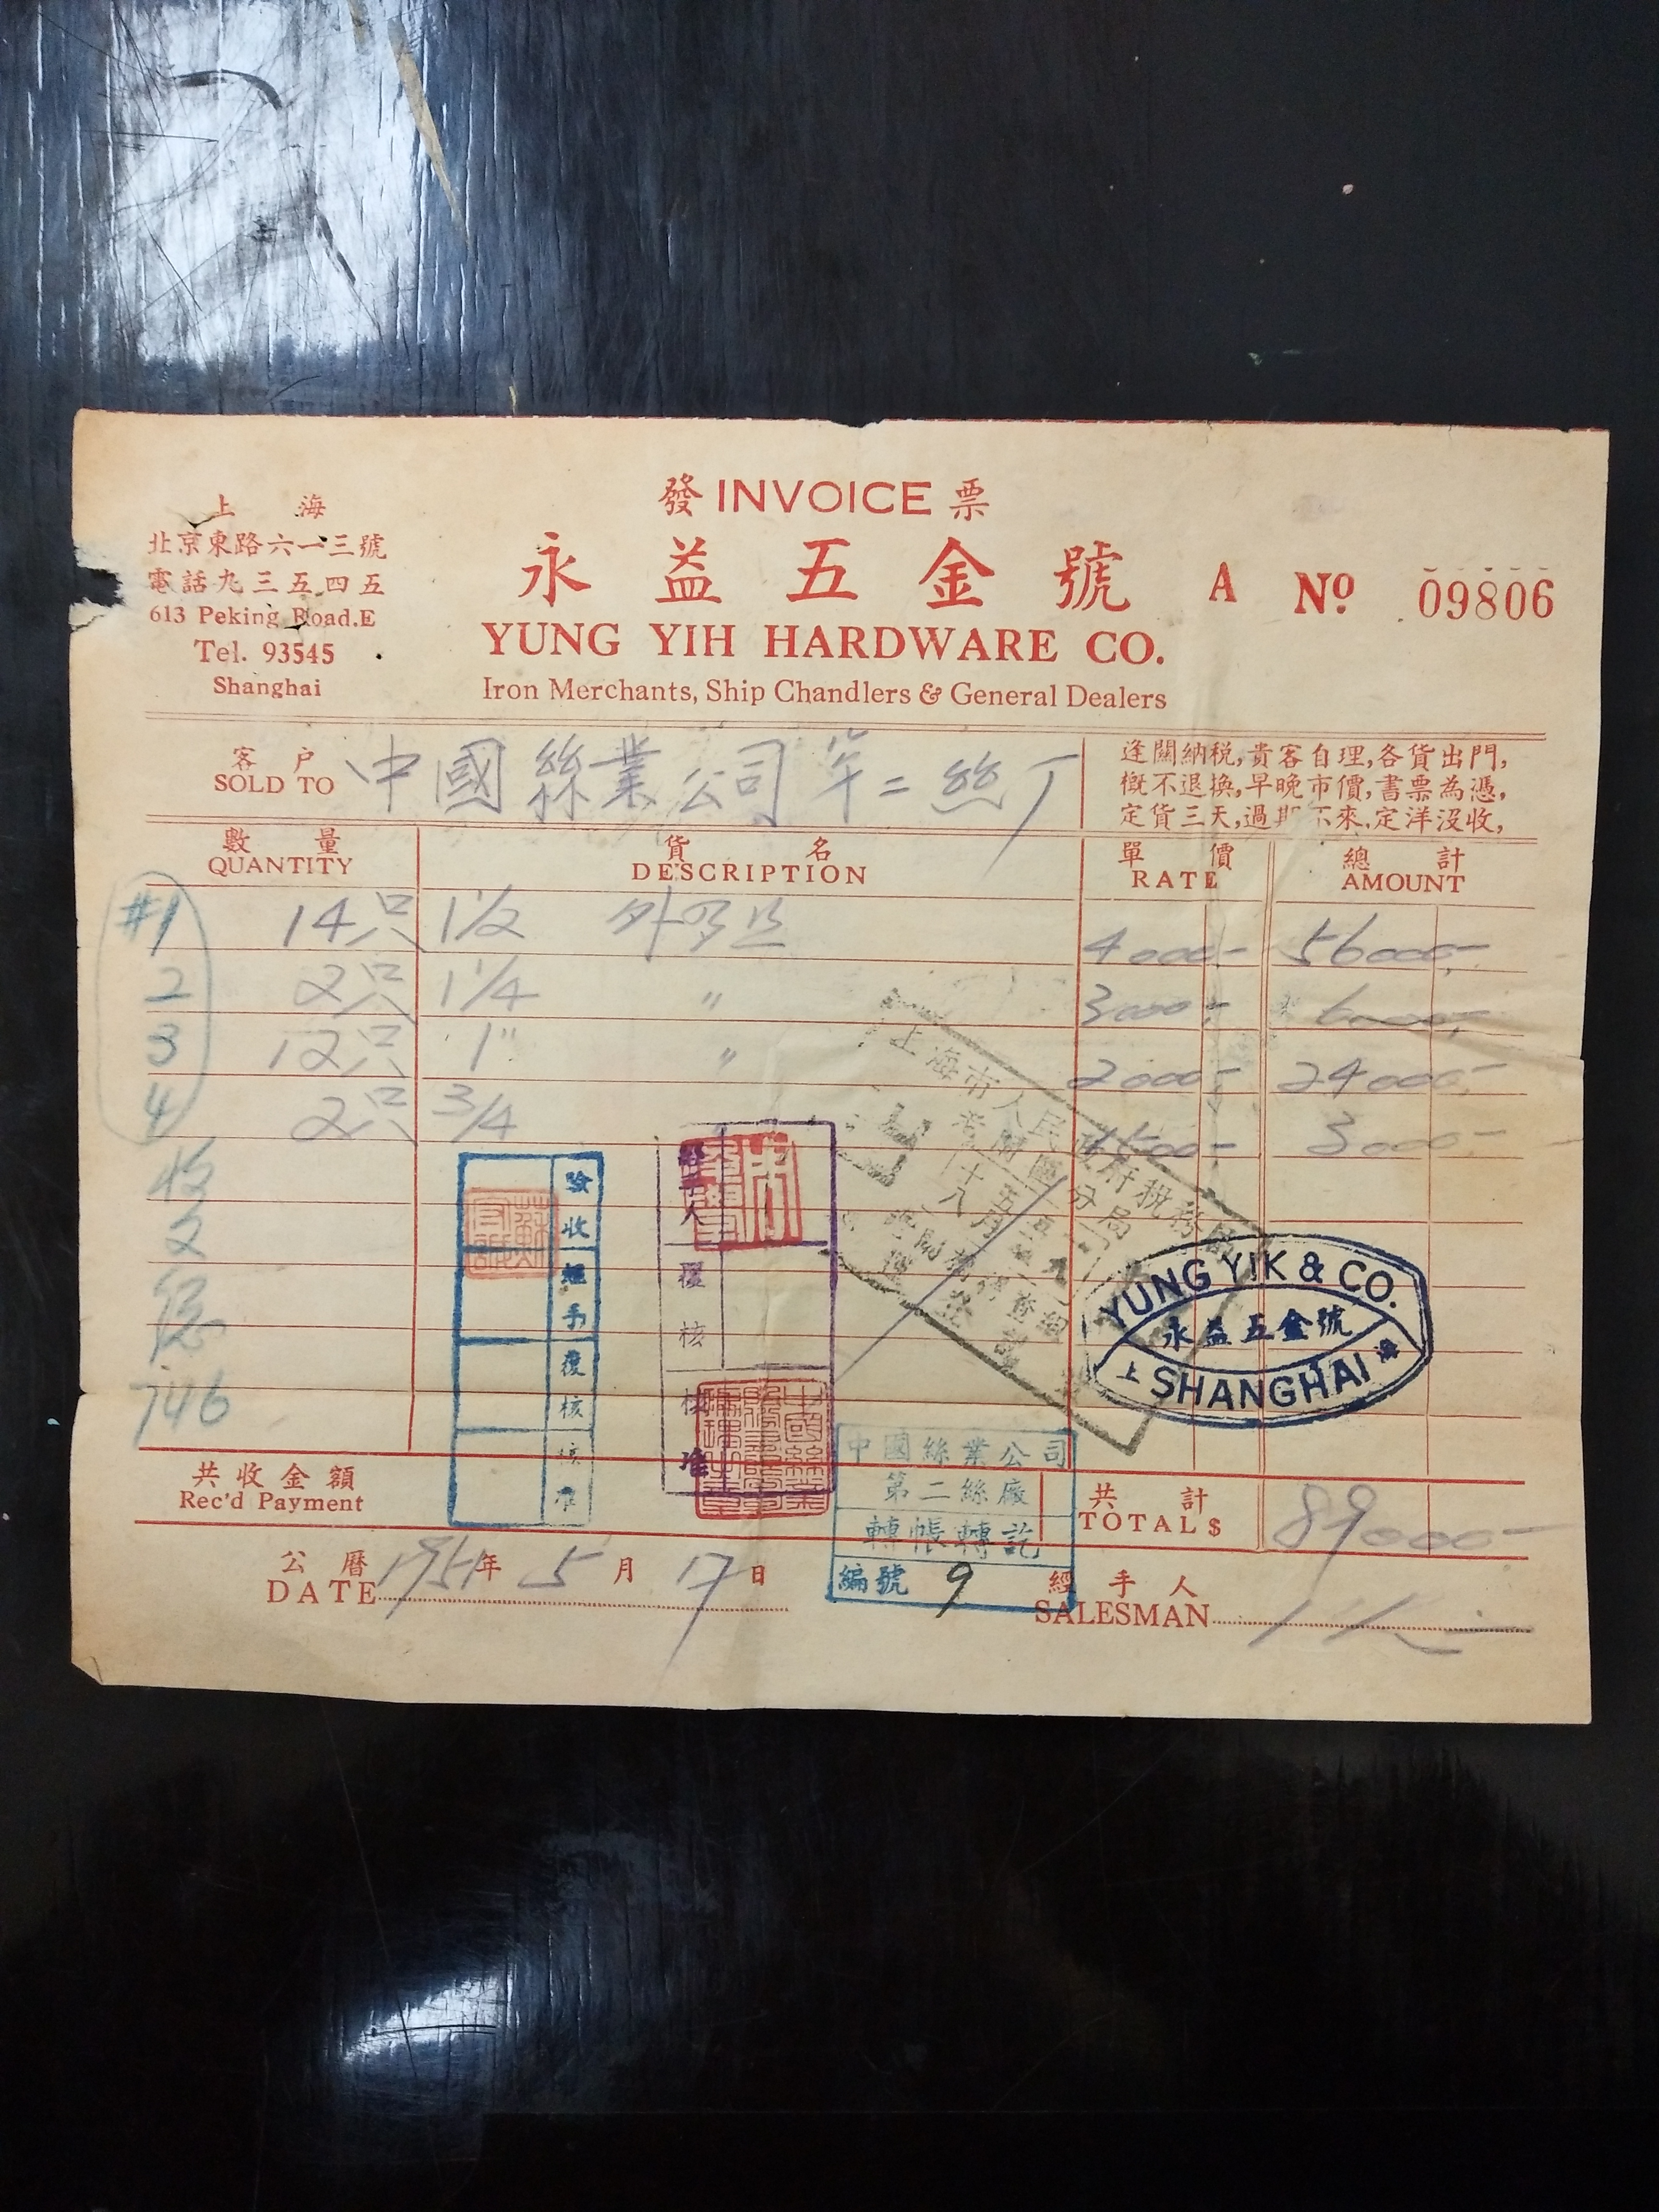 發 INVOICE 票
上海
北京東路六一三號
電話九三五四五
613 Peking Road.E
Tel. 93545
Shanghai
永益五金號
YUNG YIH HARDWARE CO.
Iron Merchants, Ship Chandlers & General Dealers
A Nº 09806
客戶
SOLD TO
中國絲業公司第二絲厂
逢關納稅,貴客自理,各貨出門,
概不退換,早晚市價,書票為憑,
定貨三天,過期不來,定洋沒收,
數量 貨名 單價 總計
QUANTITY DESCRIPTION RATE AMOUNT
#1 14只 1 1/2 外 4000- 56000-
2 2只 1 1/4 〃 3000- 6000-
3 12只 1" 〃 2000- 24000-
4 2只 3/4 1500- 3000-
收
746
驗收
經手
覆核
核准
覆核
核准
上海市人民政府稅務局
YUNG YIK & CO.
永益五金號
上海
SHANGHAI
中國絲業公司
第二絲廠
轉帳轉訖
編號 9
共收金額
Rec'd Payment
共計
TOTAL $ 89000-
公曆 1951年5月17日
DATE
經手人
SALESMAN